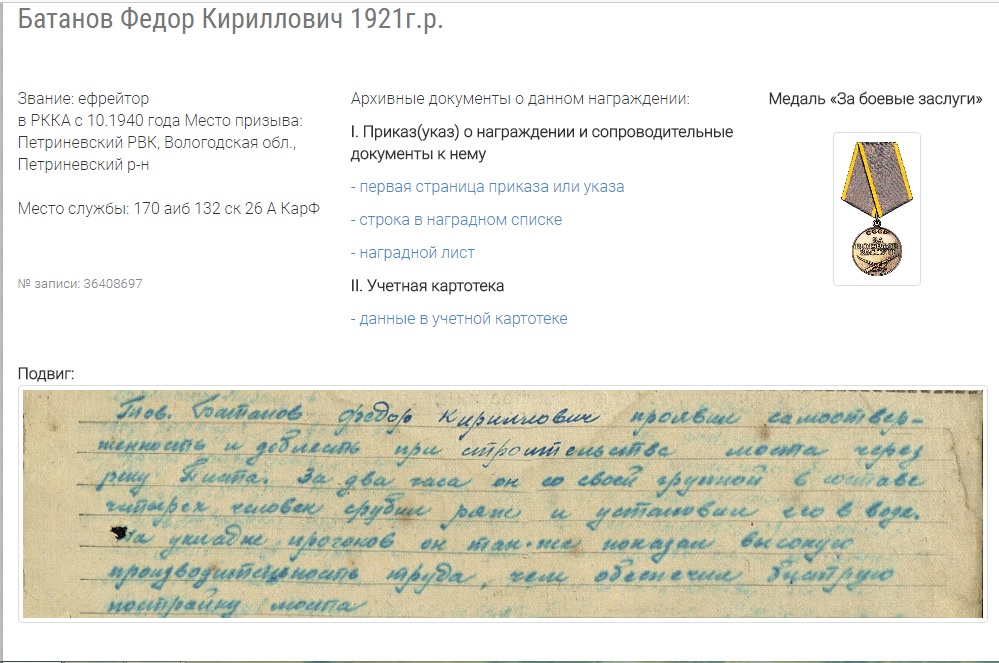 Батанов Федор Кириллович 1921г.р.
Звание: ефрейтор
в РККА с 10.1940 года Место призыва:
Петриневский РВК, Вологодская обл.,
Петриневский р-н
Место службы: 170 аиб 132 ск 26 А КарФ
№ записи: 36408697
Архивные документы о данном награждении:
I. Приказ(указ) о награждении и сопроводительные
документы к нему
- первая страница приказа или указа
- строка в наградном списке
- наградной лист
II. Учетная картотека
- данные в учетной картотеке
Медаль «За боевые заслуги»
СССР
ЗА
БОЕВЫЕ
ЗАСЛУГИ
Подвиг:
Тов. Батанов Федор Кириллович проявил самоотвер-
женность и доблесть при строительстве моста через
реку Писта. За два часа он со своей группой в составе
четырех человек срубил ряж и установил его в воде.
На укладке прогонов он так-же показал высокую
производительность труда, чем обеспечил быструю
постройку моста